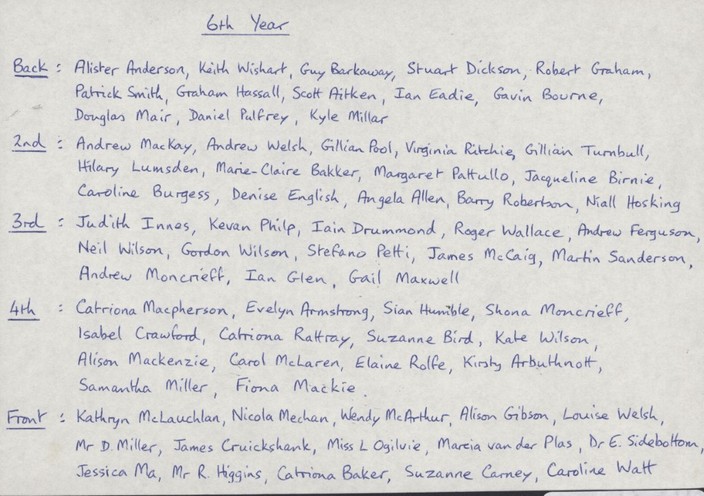 6th Year
Back : Alister Anderson, Keith Wishart, Guy Barkaway, Stuart Dickson, Robert Graham,
Patrick Smith, Graham Hassall, Scott Aitken, Ian Eadie, Gavin Bourne,
Douglas Mair, Daniel Pulfrey, Kyle Millar
2nd : Andrew MacKay, Andrew Welsh, Gillian Pool, Virginia Ritchie, Gillian Turnbull,
Hilary Lumsden, Marie-Claire Bakker, Margaret Pattullo, Jacqueline Birnie,
Caroline Burgess, Denise English, Angela Allen, Barry Robertson, Niall Hosking
3rd : Judith Innes, Kevan Philp, Iain Drummond, Roger Wallace, Andrew Ferguson,
Neil Wilson, Gordon Wilson, Stefano Petti, James McCaig, Martin Sanderson,
Andrew Moncrieff, Ian Glen, Gail Maxwell
4th : Catriona Macpherson, Evelyn Armstrong, Sian Humble, Shona Moncrieff,
Isabel Crawford, Catriona Rattray, Suzanne Bird, Kate Wilson,
Alison Mackenzie, Carol McLaren, Elaine Rolfe, Kirsty Arbuthnott,
Samantha Miller, Fiona Mackie.
Front : Kathryn McLauchlan, Nicola Mechan, Wendy McArthur, Alison Gibson, Louise Welsh,
Mr D. Miller, James Cruickshank, Miss L Ogilvie, Marcia van der Plas, Dr E. Sidebottom,
Jessica Ma, Mr R. Higgins, Catriona Baker, Suzanne Carney, Caroline Watt